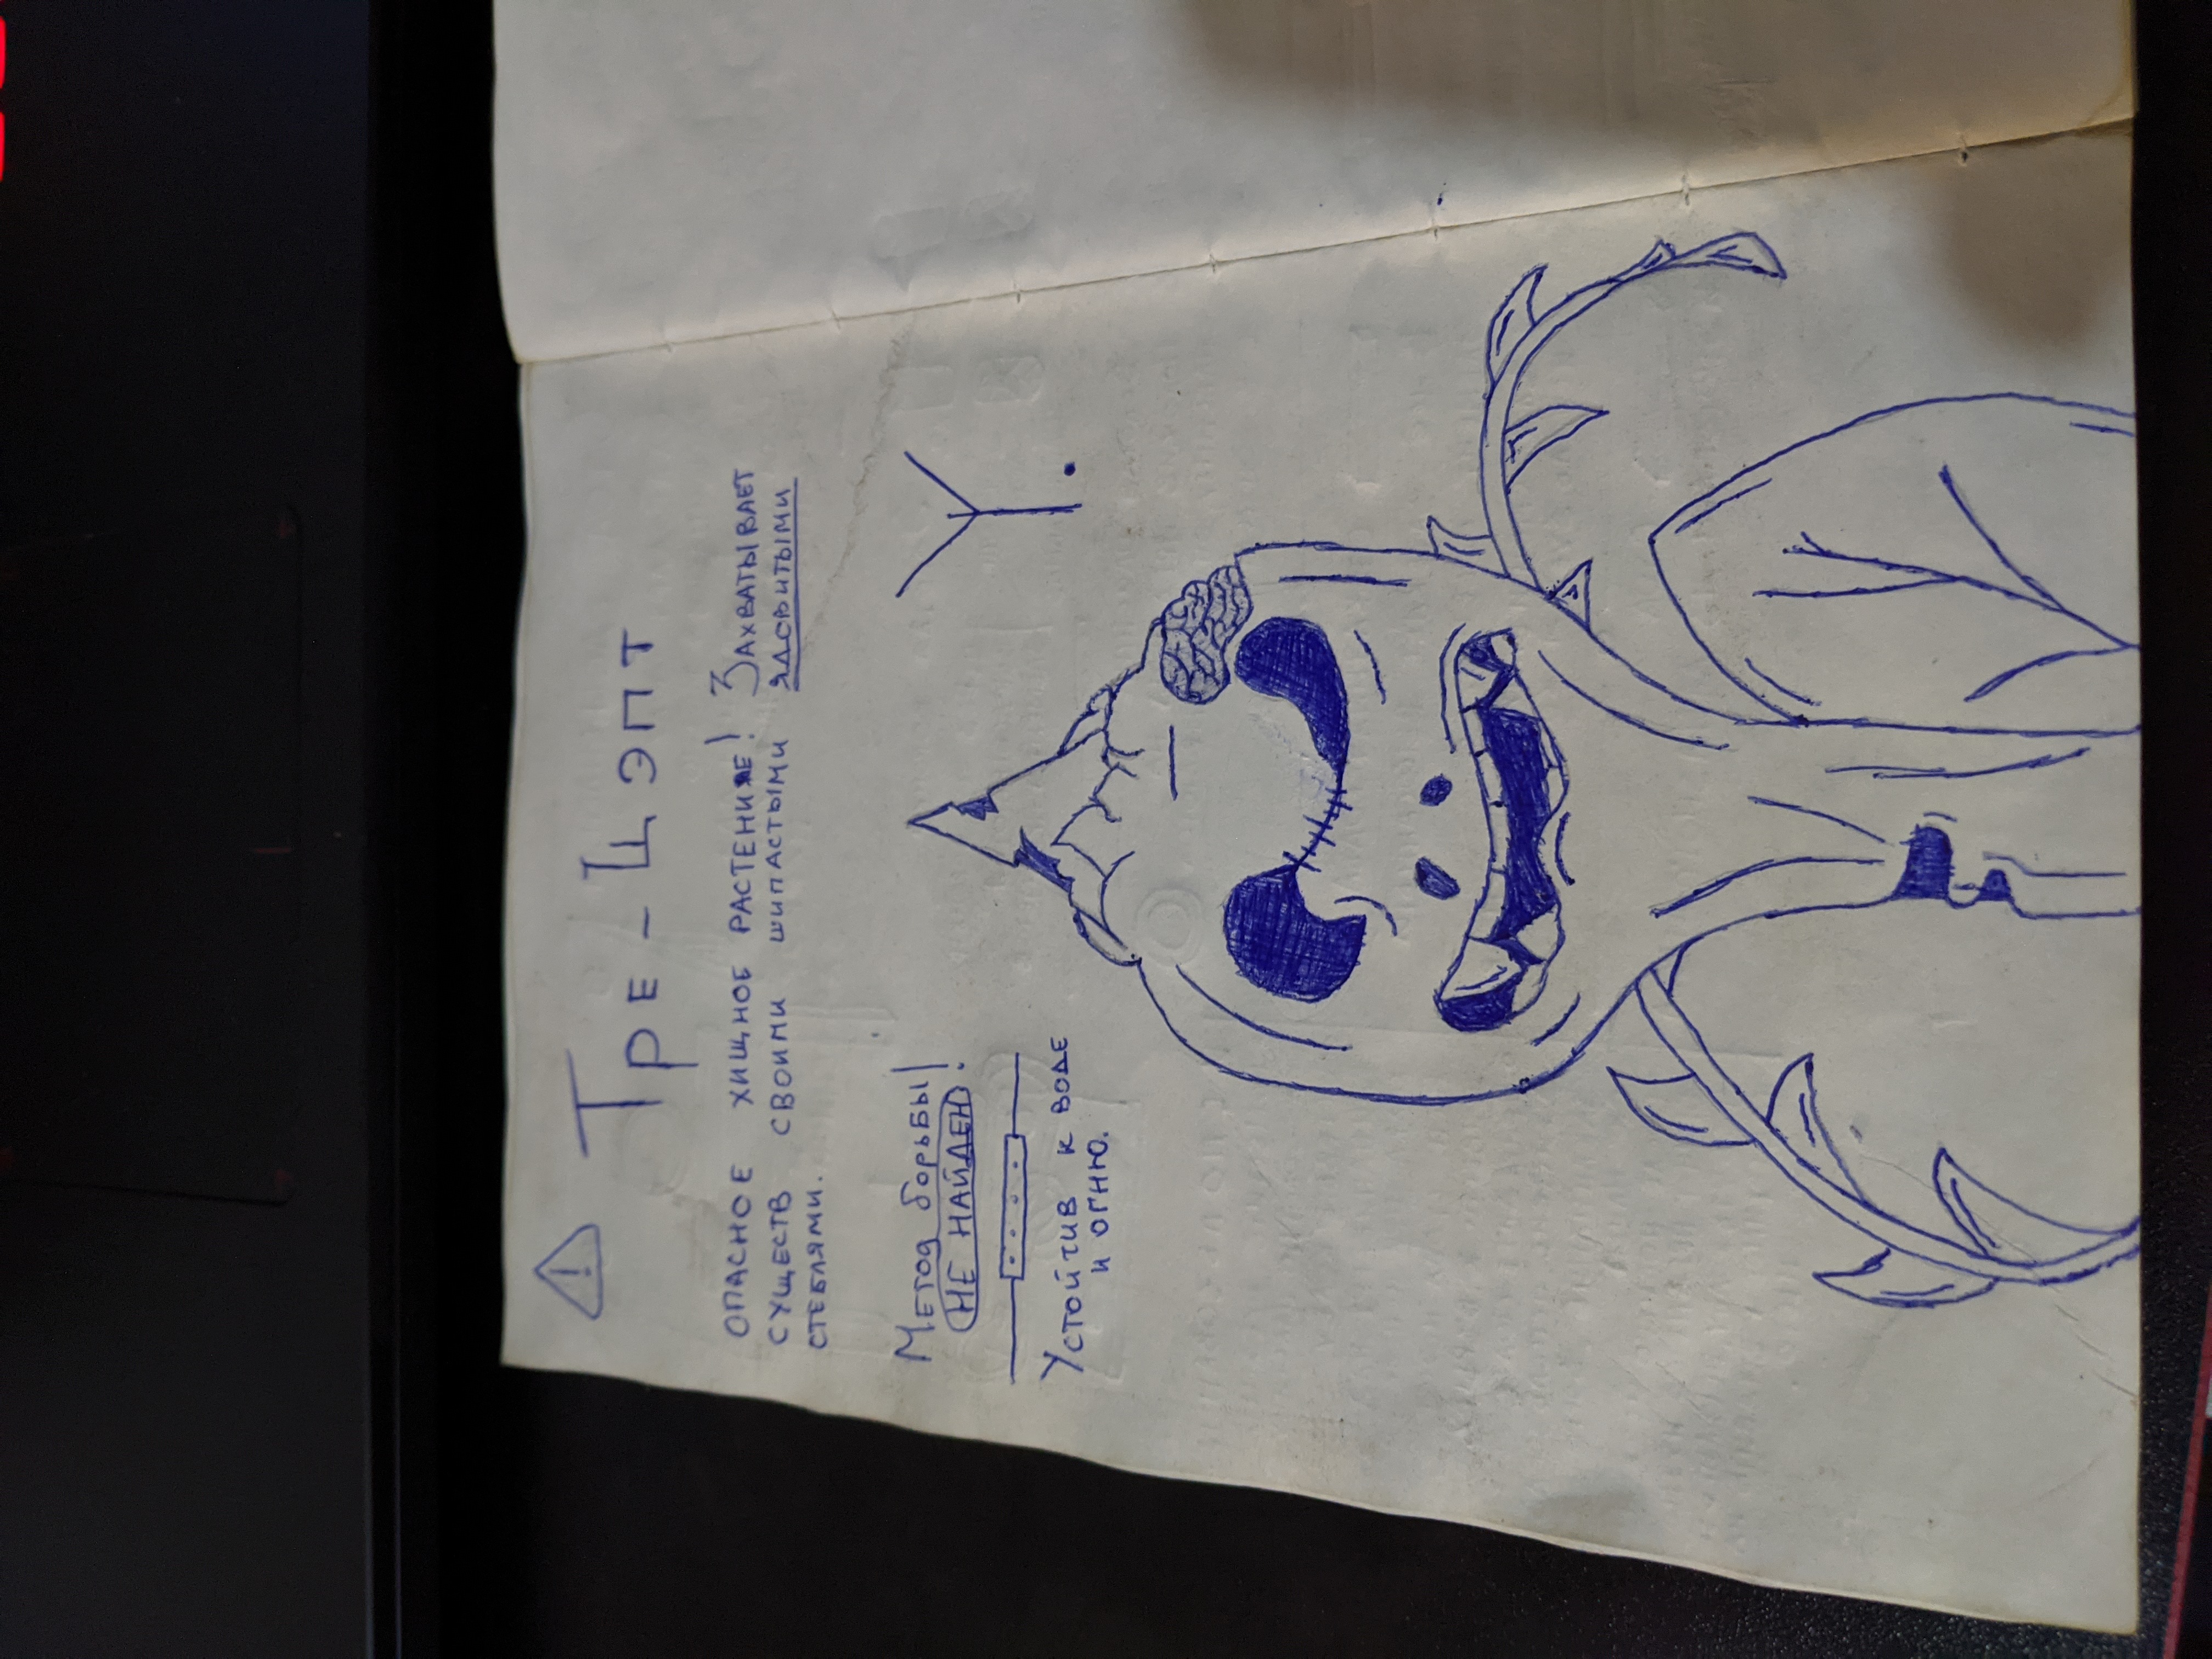 Тре-Цэпт
опасное хищное растение! Захватывает
существ своими шипастыми ядовитыми
стеблями.
Метод борьбы!
НЕ НАЙДЕН!
Устойчив к воде
и огню.
Y.